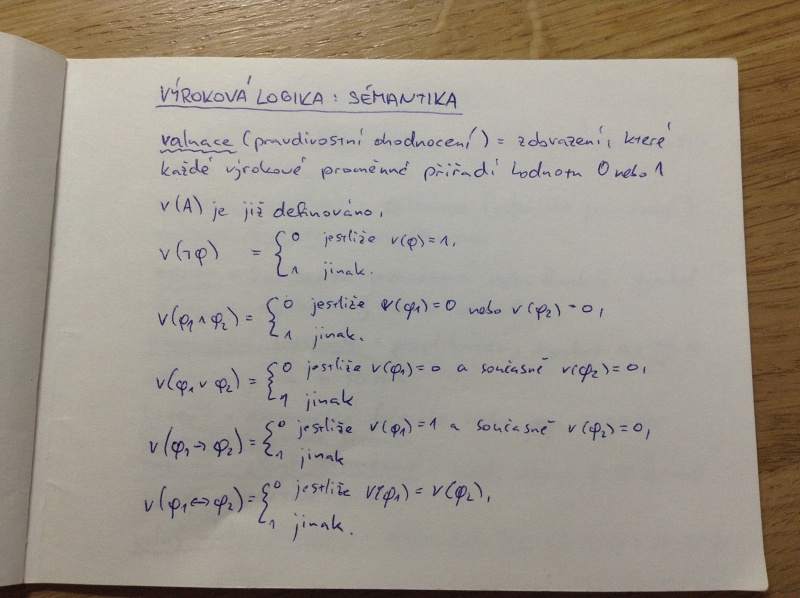 VÝROKOVÁ LOGIKA: SÉMANTIKA
valuace (pravdivostní ohodnocení) = zobrazení, které
každé výrokové proměnné přiřadí hodnotu 0 nebo 1
v(A) je již definováno,
v(¬φ) = { 0 jestliže v(φ)=1,
1 jinak.
v(φ₁ ∧ φ₂) = { 0 jestliže v(φ₁)=0 nebo v(φ₂)=0,
1 jinak.
v(φ₁ ∨ φ₂) = { 0 jestliže v(φ₁)=0 a současně v(φ₂)=0,
1 jinak
v(φ₁ → φ₂) = { 0 jestliže v(φ₁)=1 a současně v(φ₂)=0,
1 jinak
v(φ₁ ↔ φ₂) = { 0 jestliže v(φ₁) = v(φ₂),
1 jinak.